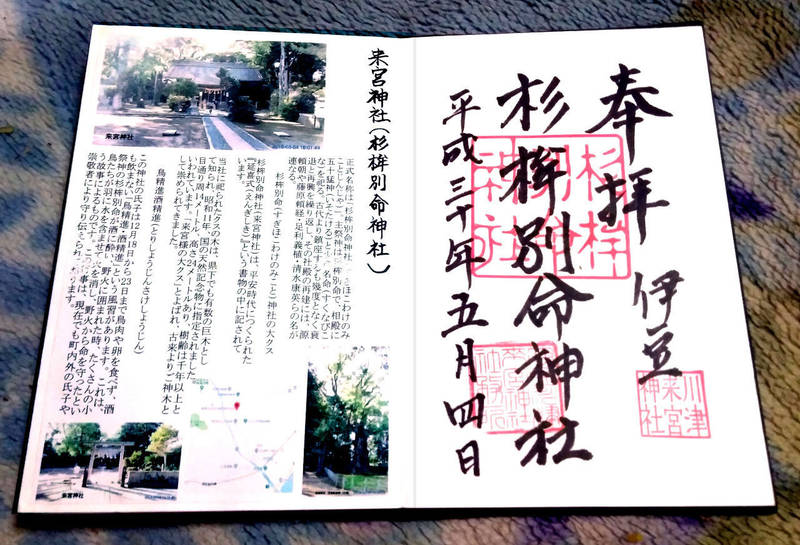 奉拝
伊豆
川津
来宮
神社
杉桙別命神社
杉桙
別命
神社
平成三十年五月四日
来宮神社(杉桙別命神社)
正式名称は「杉桙別命神社 ぎほこわけのみ
ことじんじゃ)」 主祭神は 桙別命で、相殿に
五十猛神(いそたける)と 名命(すくなびこ
な)を祀る。古代より鎮座すも幾度となく衰
退と再興を繰り返し、その社殿の再建には、源
頼朝や藤原頼経・足利義植・清水康英らの名が
連なる。
杉桙別命(すぎほこわけのみこと)神社の大クス
杉桙別命神社(来宮神社)は、平安時代につくられた
『延喜式(えんぎしき)』という書物の中に記されて
います。
当社に祀られたクスの木は、県下でも有数の巨木とし
て知られ、昭和11年、国の天然記念物に指定されました。
目通り周 14メートル、高さ24メートルあり、樹齢は千年以上と
いわれています。「来宮様の大クス」とよばれ、古来よりご神木と
して崇められてきました。
鳥精進酒精進(とりしょうじんさけしょうじん)
この神社の氏子は12月18日から23日まで鳥肉や卵を食べず、酒
も飲まない「鳥精進酒精進」という風習があります。これは、
祭神の杉桙別命が酒に酔い、野火に囲まれた時、たくさんの小
鳥たちが羽に水を含ませて火を消し、野火から命を守ったとい
う故事によるものです。この 事は、現在でも町内外の氏子や
崇敬者により守り伝えられ ます。
来宮神社
来宮神社